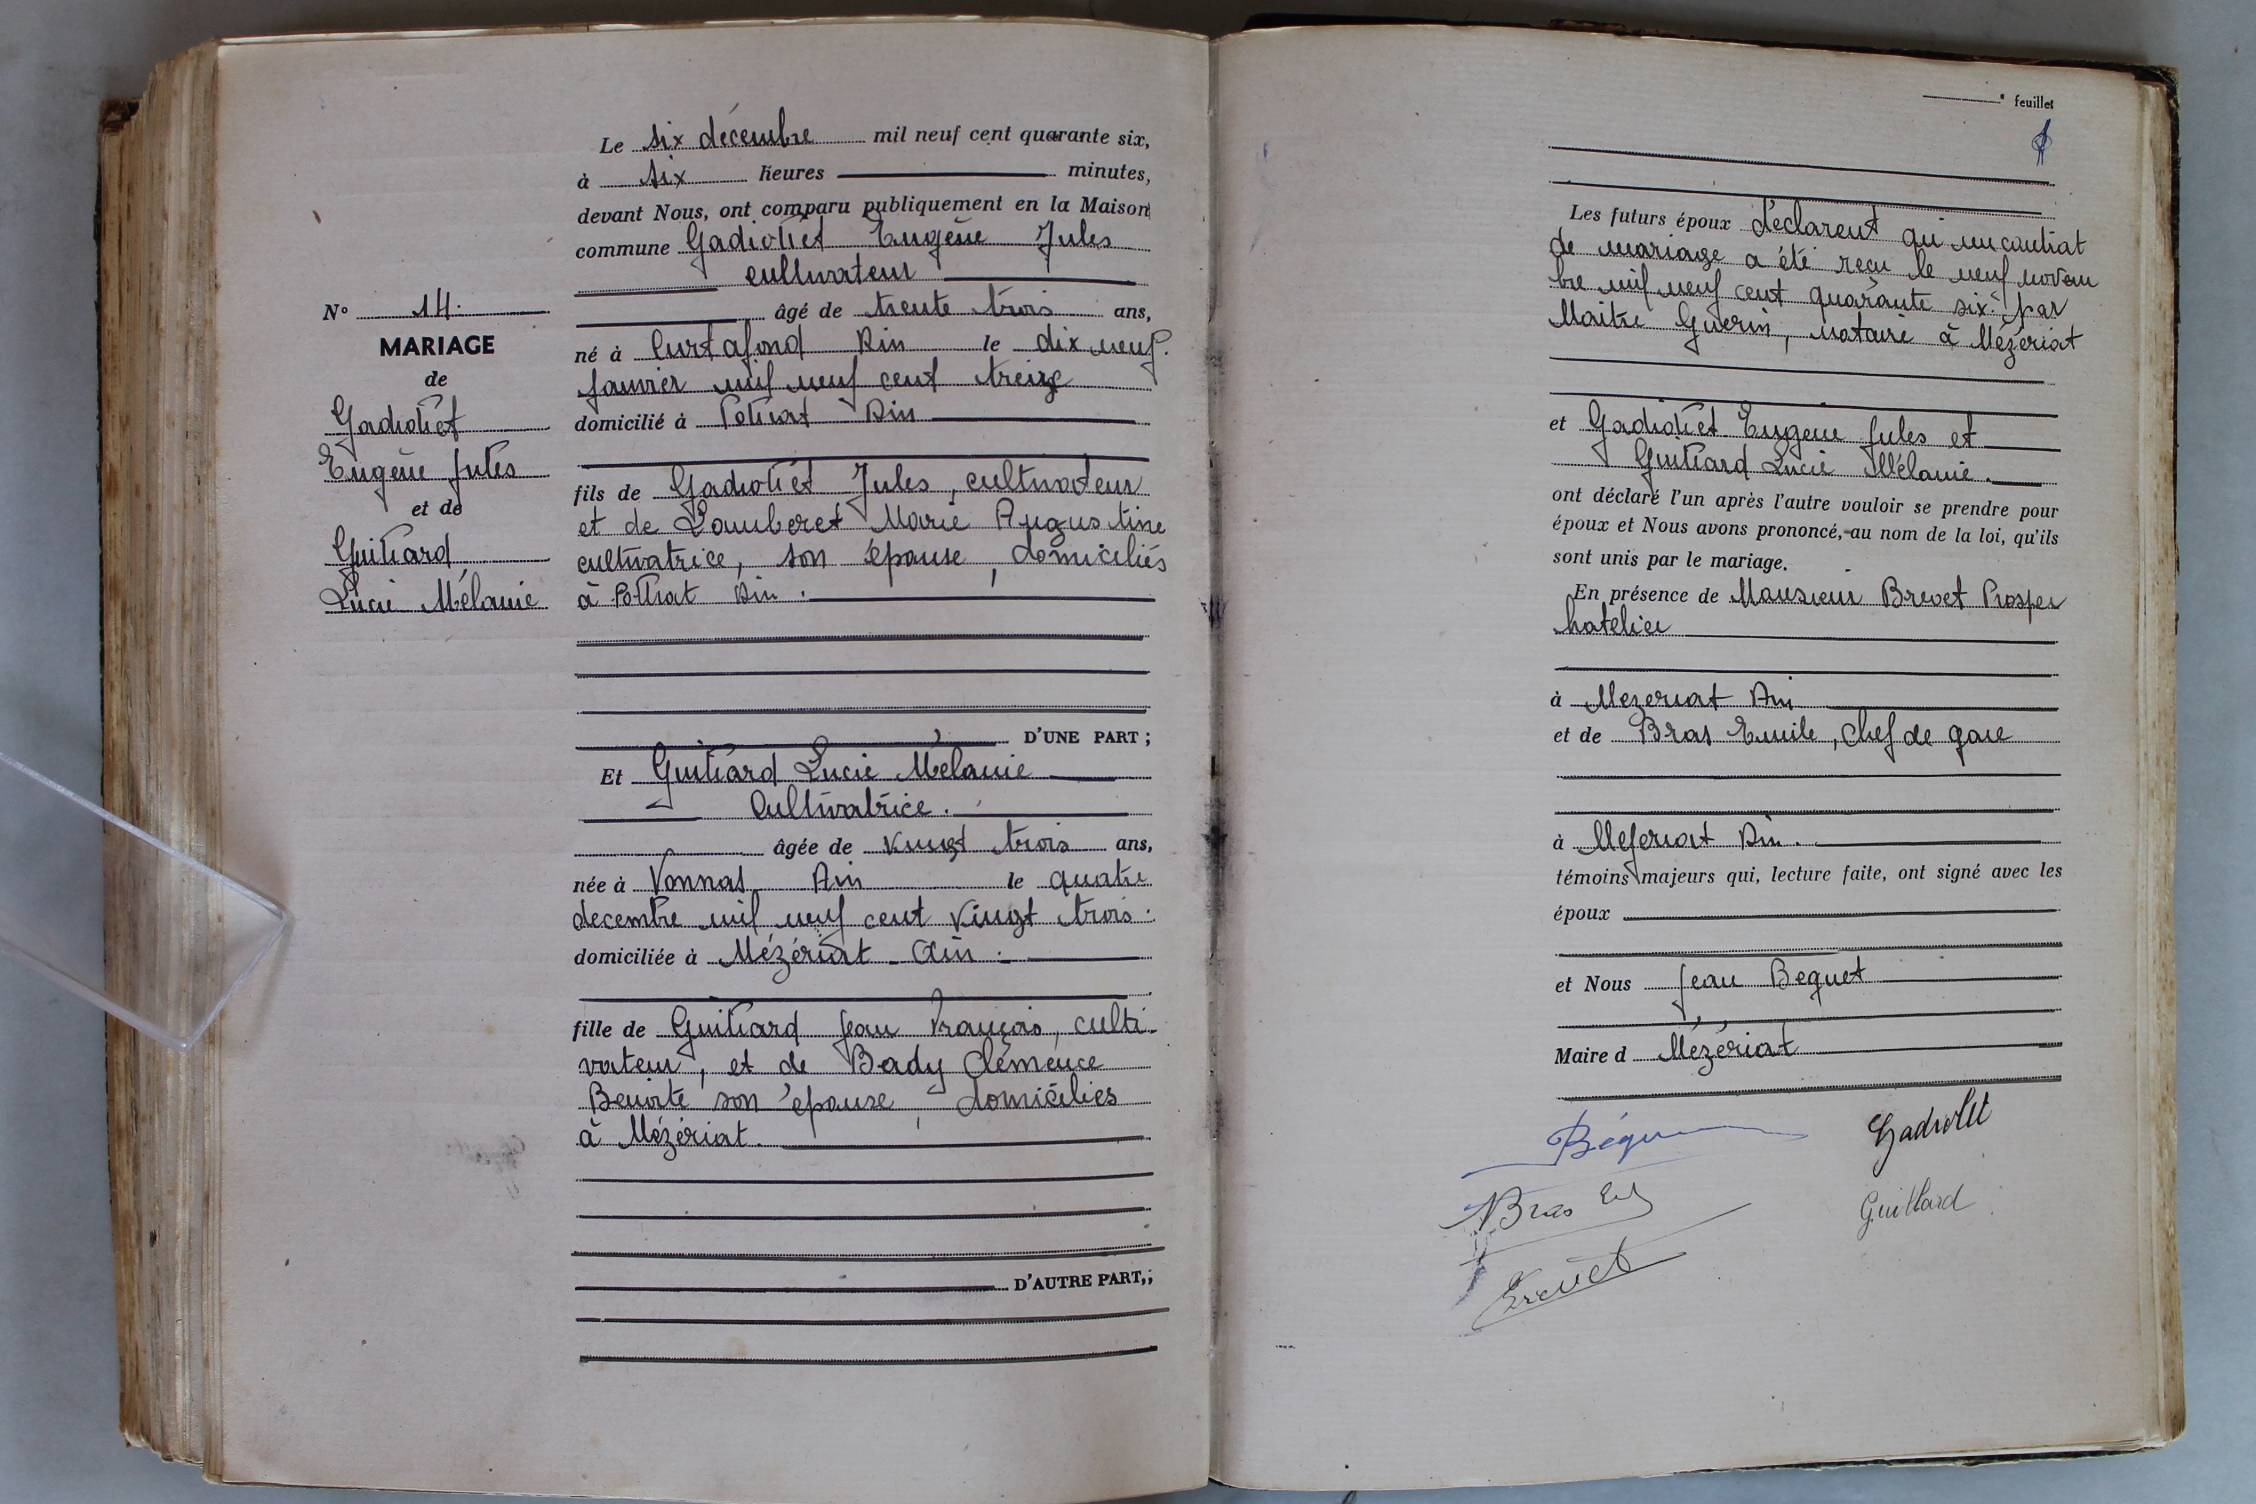 Le six décembre mil neuf cent quarante six,
à six heures minutes,
devant Nous, ont comparu publiquement en la Maison
commune Gadiollet Eugène Jules
cultivateur
âgé de trente trois ans,
né à Curtafond Ain le dix neuf
janvier mil neuf cent treize
domicilié à Polliat Ain
fils de Gadiollet Jules, cultivateur
et de Lamberet Marie Augustine
cultivatrice, son épouse, domiciliés
à Polliat Ain.
D'UNE PART ;
Et Guillard Lucie Mélanie
Cultivatrice.
âgée de vingt trois ans,
née à Vonnas Ain le quatre
decembre mil neuf cent vingt trois.
domiciliée à Mézériat - Ain.
fille de Guillard Jean François, culti-
vateur, et de Bady Clémence
Benoite son épouse, domiciliés
à Mézériat.
D'AUTRE PART,;
N° 14.
MARIAGE
de
Gadiollet
Eugène Jules
et de
Guillard
Lucie Mélanie
feuillet
Les futurs époux déclarent qu'un contrat
de mariage a été reçu le neuf novem
bre mil neuf cent quarante six. par
Maitre Guerin, notaire à Mézériat
et Gadiollet Eugène Jules et
Guillard Lucie Mélanie.
ont déclaré l'un après l'autre vouloir se prendre pour
époux et Nous avons prononcé, au nom de la loi, qu'ils
sont unis par le mariage.
En présence de Monsieur Brevet Prosper
hotelier
à Mezeriat Ain
et de Bras Emile, Chef de gare
à Mezeriat Ain.
témoins majeurs qui, lecture faite, ont signé avec les
époux
et Nous Jean Beguet
Maire d Mézériat
Béguet
Gadiollet
Bras
Guillard
Brevet